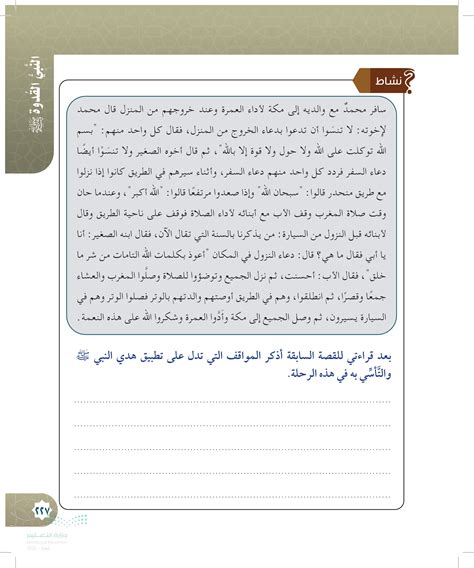 النبي القدوة ﷺ
نشاط
سافر محمدٌ مع والديه إلى مكة لأداء العمرة وعند خروجهم من المنزل قال محمد
لإخوته: لا تنسَوا أن تدعوا بدعاء الخروج من المنزل، فقال كل واحد منهم: "بسم
الله توكلت على الله ولا حول ولا قوة إلا بالله"، ثم قال أخوه الصغير ولا تنسَوْا أيضًا
دعاء السفر فردد كل واحد منهم دعاء السفر، وأثناء سيرهم في الطريق كانوا إذا نزلوا
مع طريق منحدر قالوا: "سبحان الله" وإذا صعدوا مرتفعًا قالوا: "الله أكبر"، وعندما حان
وقت صلاة المغرب وقف الأب مع أبنائه لأداء الصلاة فوقف على ناحية الطريق وقال
لأبنائه قبل النزول من السيارة: من يذكرنا بالسنة التي تقال الآن، فقال ابنه الصغير: أنا
يا أبي فقال ما هي؟ قال: دعاء النزول في المكان "أعوذ بكلمات الله التامات من شر ما
خلق"، فقال الأب: أحسنت، ثم نزل الجميع وتوضؤوا للصلاة وصلَّوا المغرب والعشاء
جمعًا وقصرًا، ثم انطلقوا، وهم في الطريق أوصتهم والدتهم بالوتر فصلوا الوتر وهم في
السيارة يسيرون، ثم وصل الجميع إلى مكة وأدَّوا العمرة وشكروا الله على هذه النعمة.
بعد قراءتي للقصة السابقة أذكر المواقف التي تدل على تطبيق هدي النبي ﷺ
والتَّأسِّي به في هذه الرحلة.
٢٢٧
وزارة التعليم